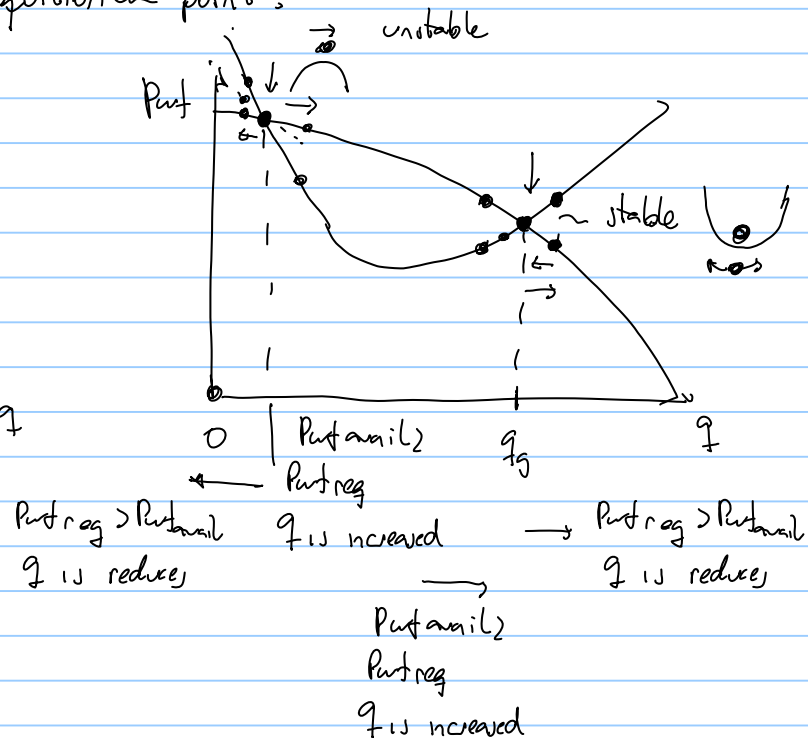 points
unstable
Pwf
stable
q
0
Pwfavail2
qg
q
Pwfreq
Pwfreq > Pwfavail
q is reduces
q is increased
Pwfreq > Pwfavail
q is reduces
Pwfavail2
Pwfreq
q is increased